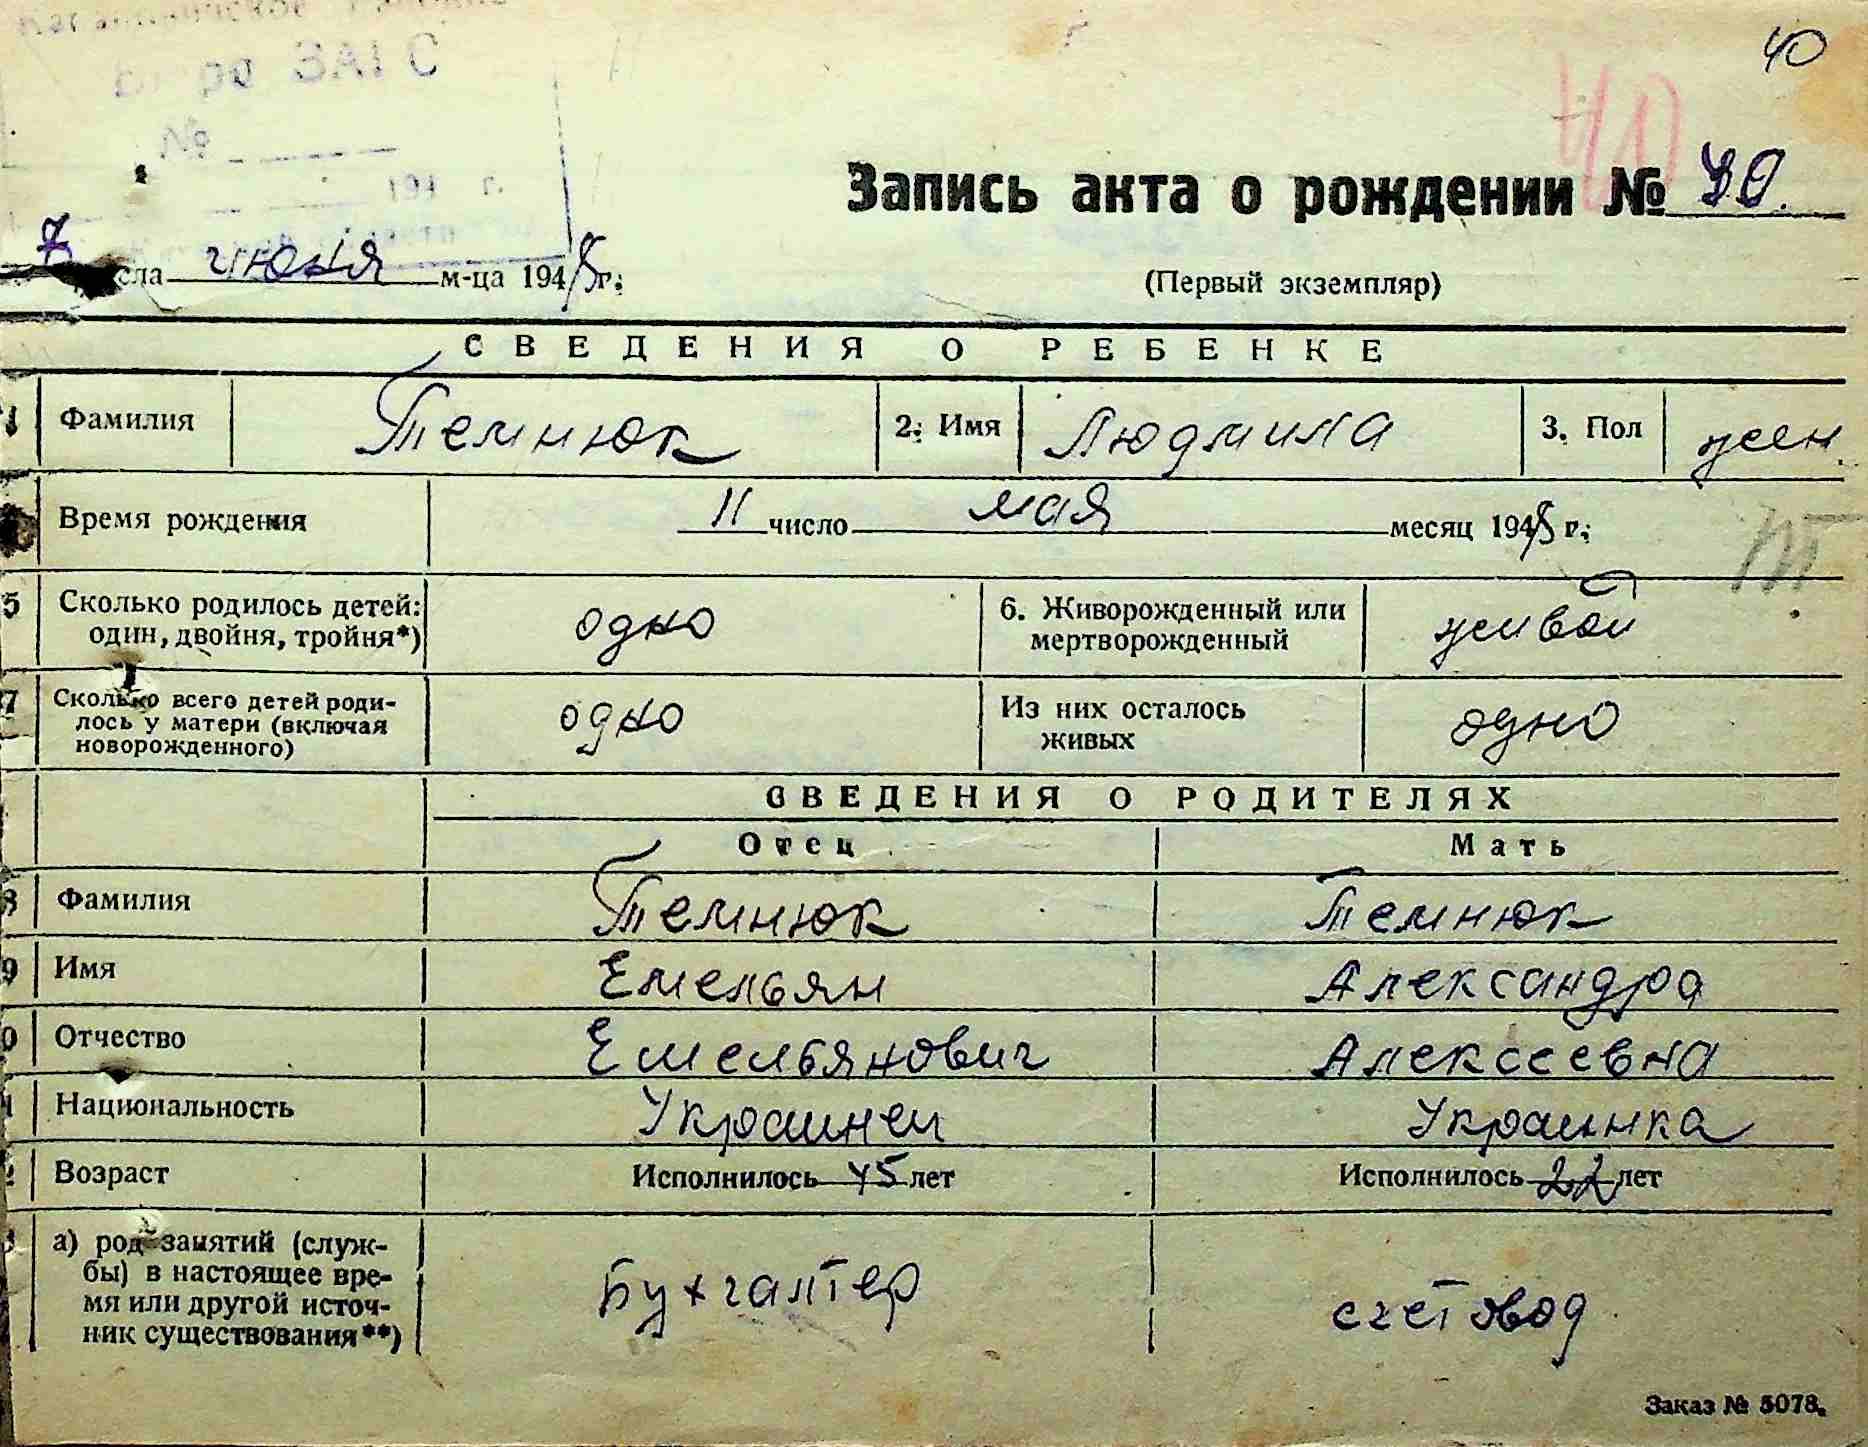 40
Бюро ЗАГС
№
194 г.
40
Запись акта о рождении № 40.
7 числа июня м-ца 1948 г.
(Первый экземпляр)
СВЕДЕНИЯ О РЕБЕНКЕ
1 Фамилия Темнюк 2. Имя Людмила 3. Пол жен.
Время рождения 11 число мая месяц 1948 г.
5 Сколько родилось детей: один, двойня, тройня*) одно 6. Живорожденный или мертворожденный живой
7 Сколько всего детей родилось у матери (включая новорожденного) одно Из них осталось живых одно
СВЕДЕНИЯ О РОДИТЕЛЯХ
Отец Мать
8 Фамилия Темнюк Темнюк
9 Имя Емельян Александра
0 Отчество Емельянович Алексеевна
1 Национальность Украинец Украинка
2 Возраст Исполнилось 45 лет Исполнилось 22 лет
3 а) род занятий (службы) в настоящее время или другой источник существования**) Бухгалтер счетовод
Заказ № 5078.